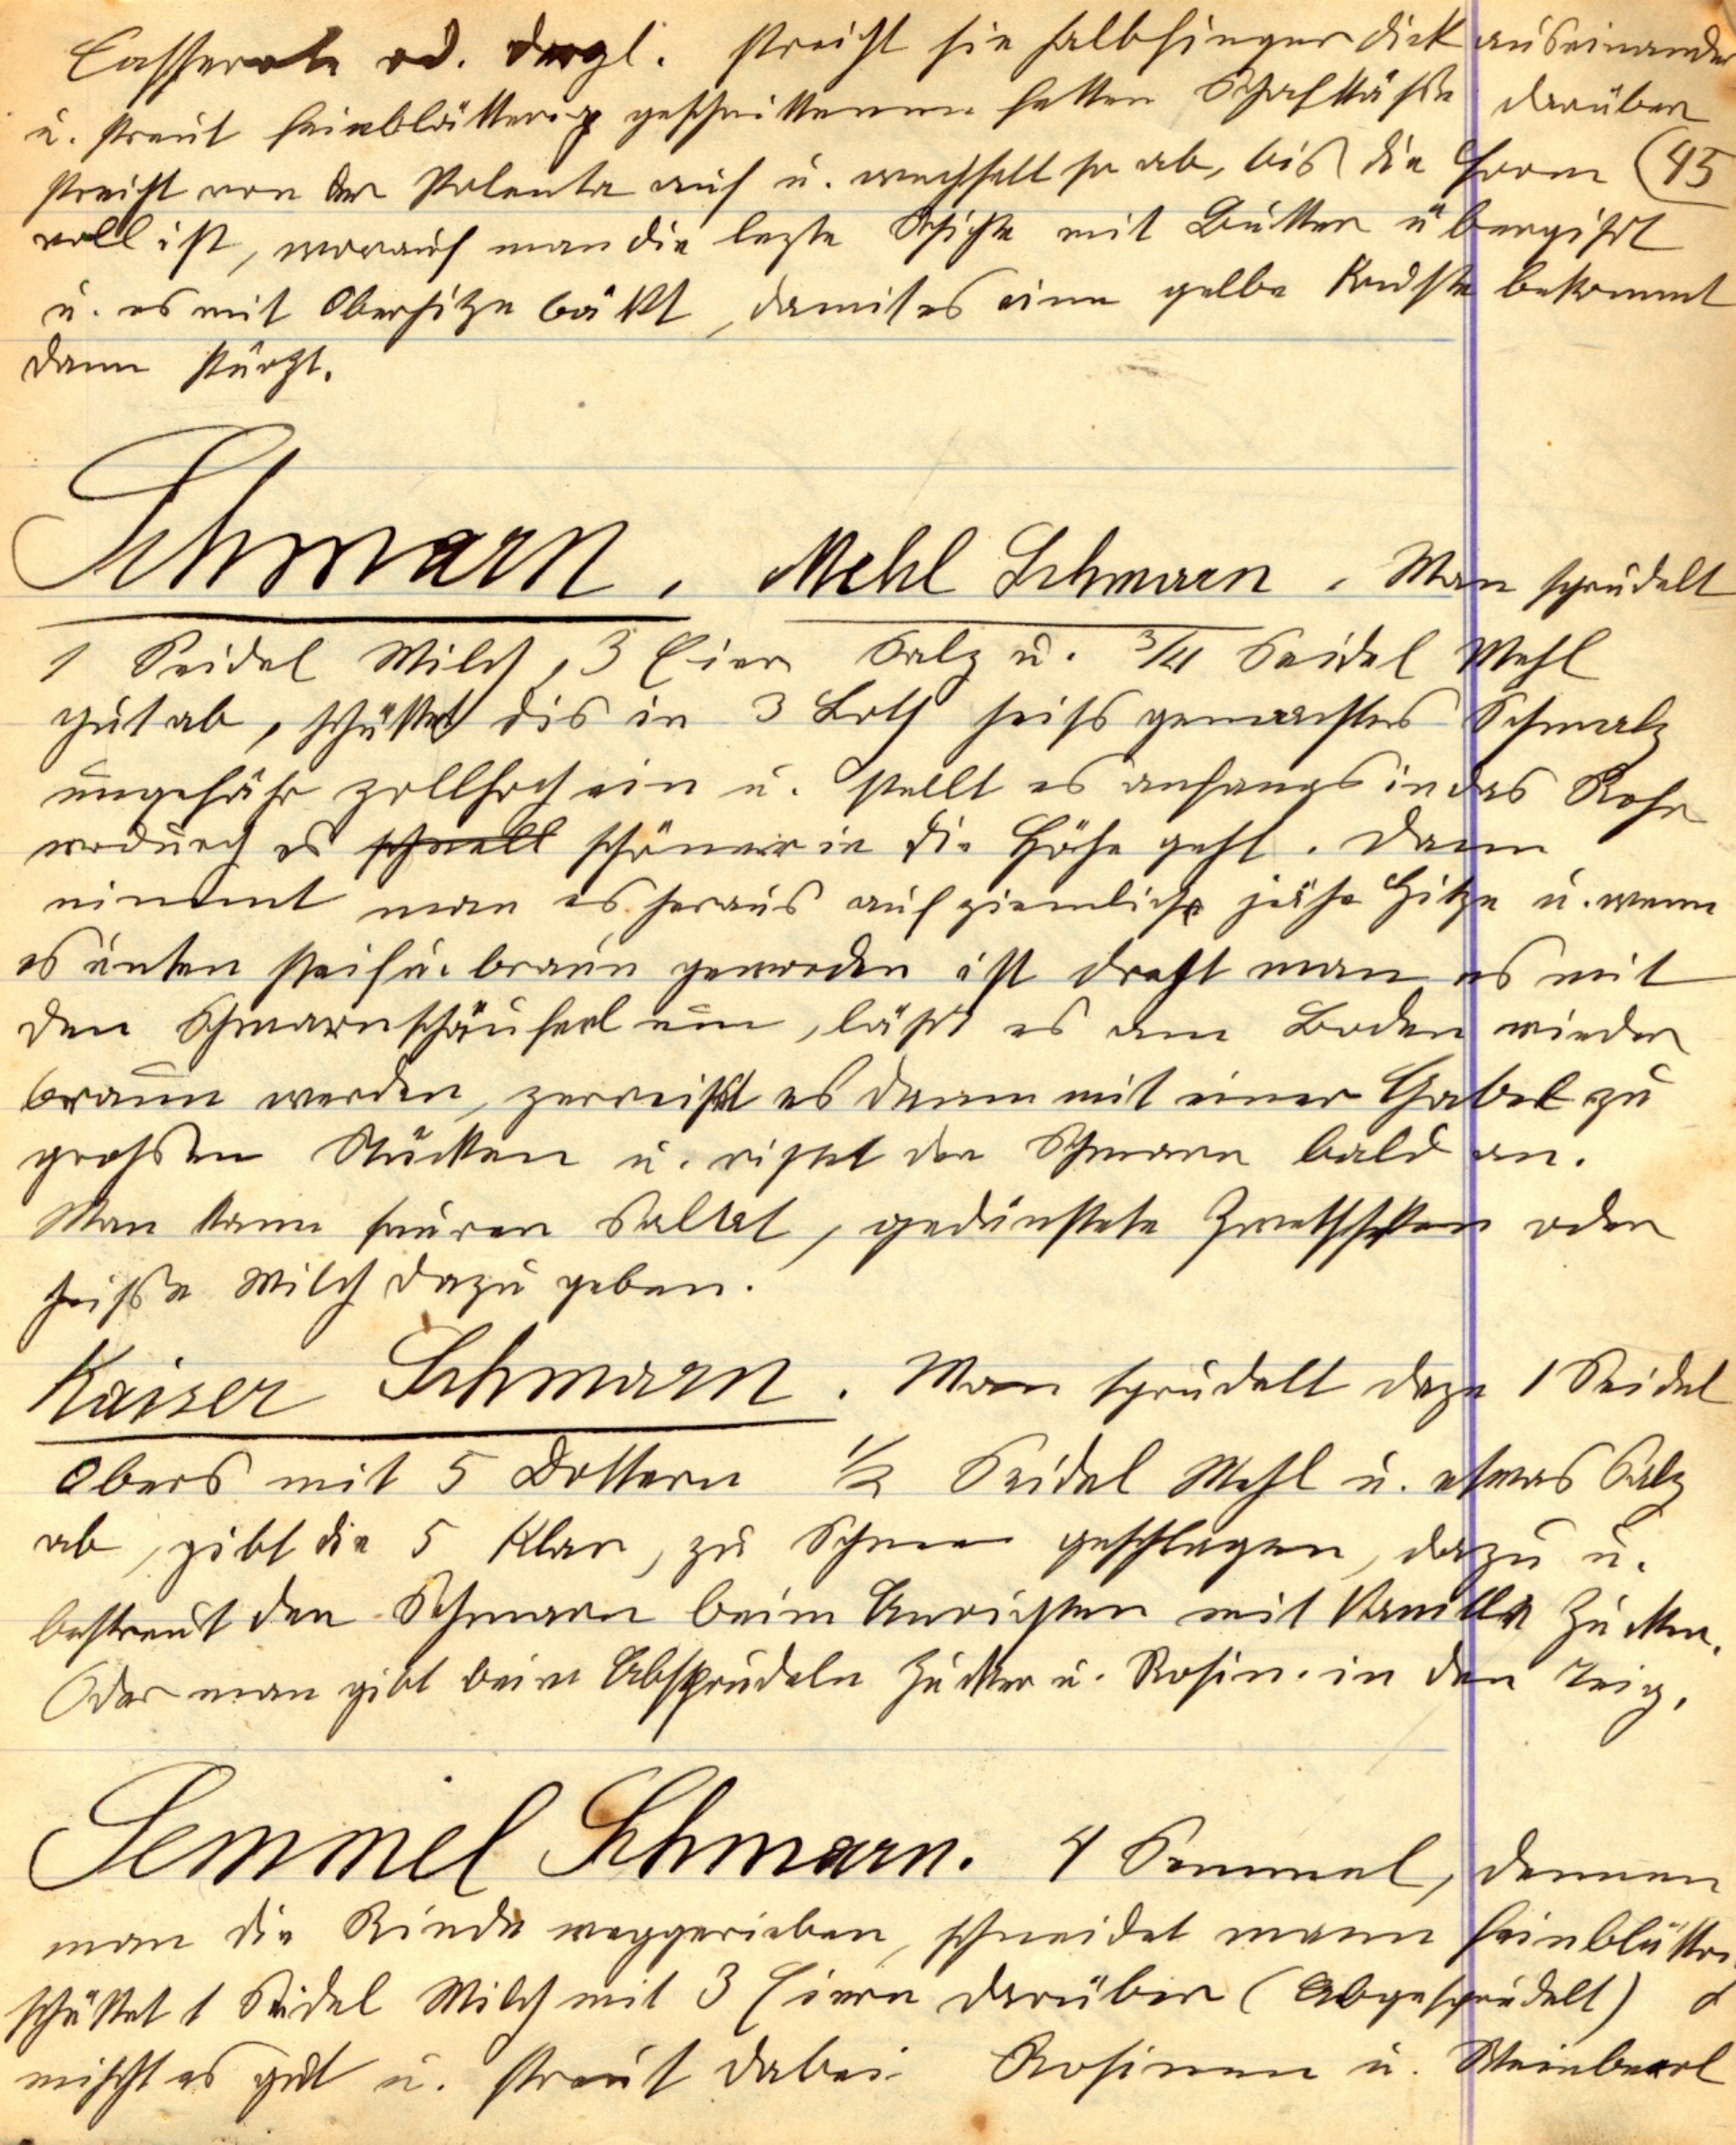 Casserole od. dergl. streicht sie halbfinger dick auseinander
u. streut feinblätterig geschnittenen fetten Schafkäße darüber
streicht von der Polenta auf u. wechselt so ab, bis die Form (45
voll ist, worauf man die lezte Schichte mit Butter übergißt
u. es mit Oberhitze bäkt, damit es eine gelbe Kruste bekommt
dann stürzt.
Schmarn, Mehl Schmarn. Man sprudelt
1 Seidel Milch, 3 Eier Salz u. 3/4 Seidel Mehl
gut ab, schüttet dis in 3 Loth heiß gemachtes Schmalz
ungefähr zollhoch ein u. stellt es anfangs in das Rohr
wodurch es schnell schöner in die Höhe geht. Dann
nimmt man es heraus auf ziemliche jähe Hitze u. wenn
es unten steif u. braun geworden ist dreht man es mit
den Schmarnschäuferl um, läßt es am Boden wieder
braun werden, zerreißt es dann mit einer Gabel zu
großen Stücken u. richtet den Schmarn bald an.
Man kann sauren Sallat, gedünstete Zwetschken oder
heiße Milch dazu geben.
Kaiser Schmarn. Man sprudelt dazu 1 Seidel
Obers mit 5 Dottern 1/2 Seidel Mehl u. etwas Salz
ab, gibt die 5 Klar, zu Schnee geschlagen, dazu u.
bestreut den Schmarn beim Anrichten mit Vanille Zucker.
Oder man gibt beim Absprudeln Zucker u. Rosin. in den Teig.
Semmel Schmarn. 4 Semmel, dennen
man die Rinde weggerieben, schneidet mann feinblättri
schüttet 1 Seidel Milch mit 3 Eiern darüber (Abgesprudelt)
mischt es gut u. streut dabei Rosinen u. Weinberl